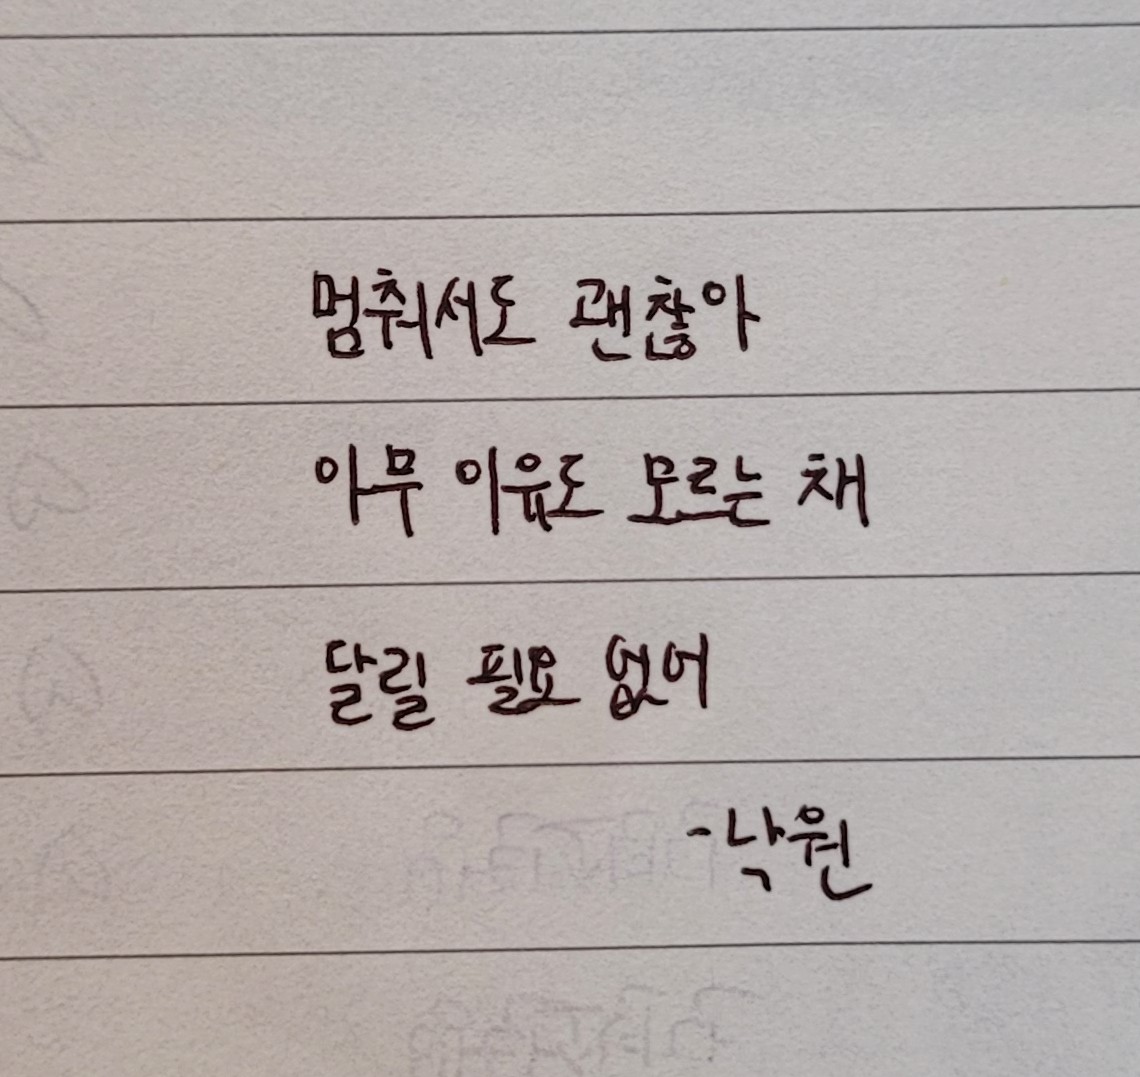 멈춰서도 괜찮아
아무 이유도 모르는 채
달릴 필요 없어
-낙원